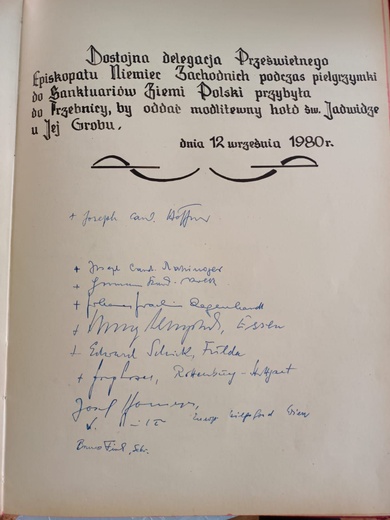 Dostojna delegacja Prześwietnego
Episkopatu Niemiec Zachodnich podczas pielgrzymki
do Sanktuariów Ziemi Polski przybyła
do Trzebnicy, by oddać modlitewny hołd św. Jadwidze
u Jej Grobu.
dnia 12 września 1980 r.
+ Joseph Card. Höffner
+ Card. Ratzinger
+
+ Degenhardt
+ Essen
+ Eduard Schick, Fulda
+ Rottenburg - Stuttgart
Josef Homeyer
Wien